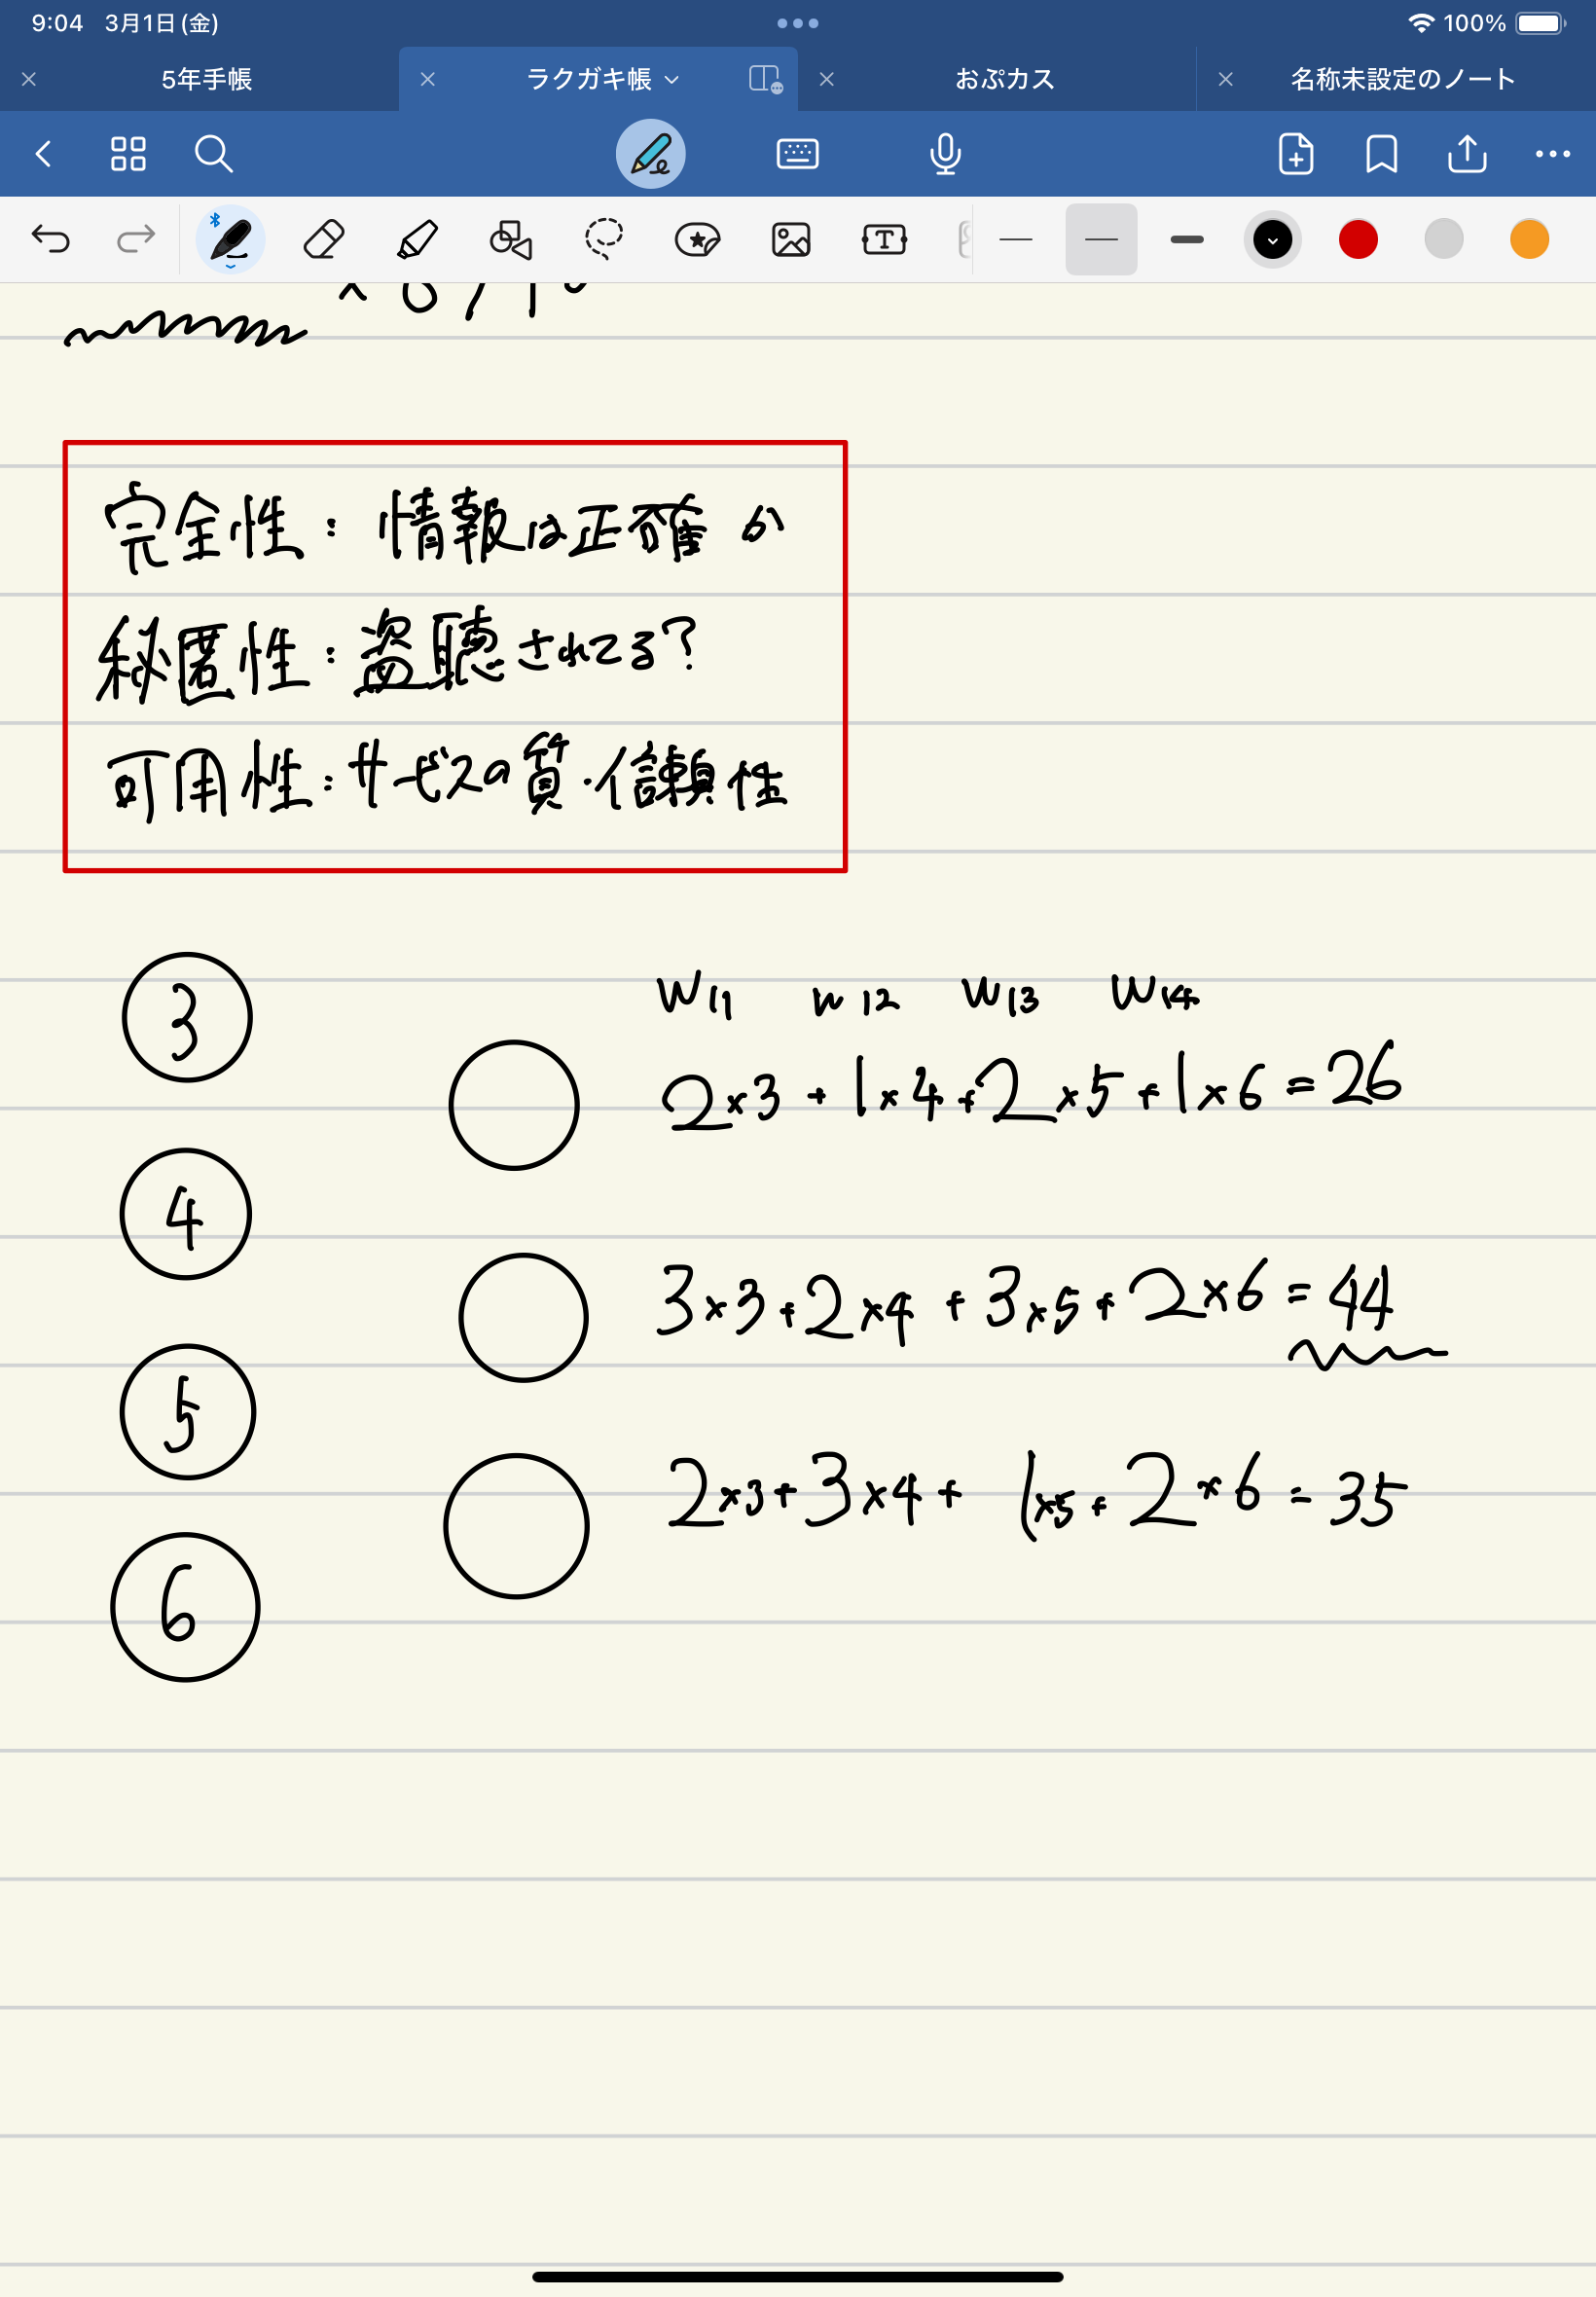 9:04 3月1日(金) 100%
5年手帳 ラクガキ帳 おぷカス 名称未設定のノート
完全性: 情報は正確か
秘匿性: 盗聴されてる?
可用性: サービスの質・信頼性
3
W11 W12 W13 W14
2×3 + 1×4 + 2×5 + 1×6 = 26
4
3×3 + 2×4 + 3×5 + 2×6 = 44
5
2×3 + 3×4 + 1×5 + 2×6 = 35
6